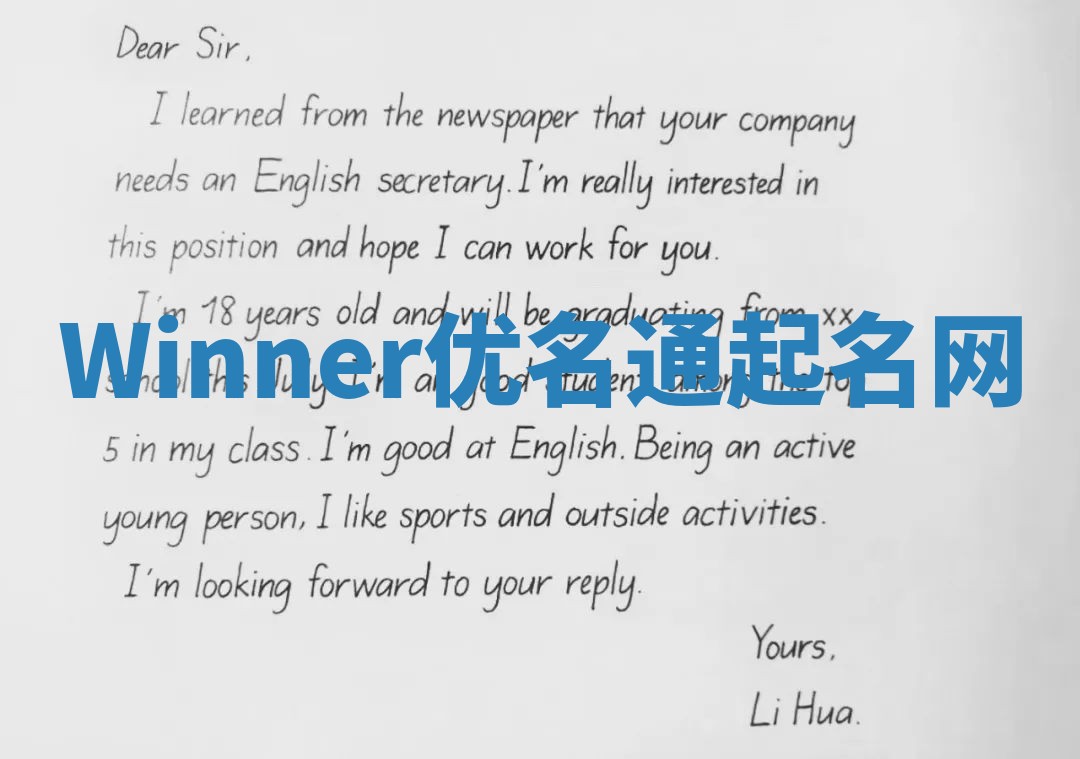 Dear Sir,
I learned from the newspaper that your company
needs an English secretary. I'm really interested in
this position and hope I can work for you.
I'm 18 years old and will be graduating from xx
Winner优名通起名网
school this July. I'm a good student among the top
5 in my class. I'm good at English. Being an active
young person, I like sports and outside activities.
I'm looking forward to your reply.
Yours,
Li Hua.